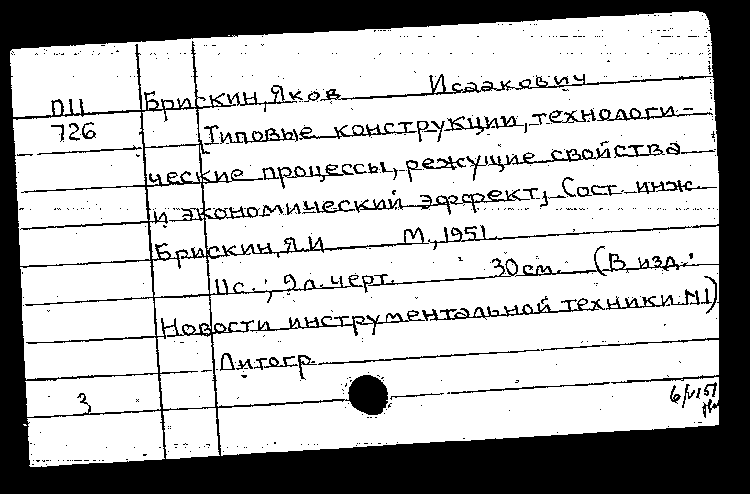 П11 Брискин, Яков Исаакович
726 Типовые конструкции, технологи-
ческие процессы, режущие свойства
и экономический эффект, Сост. инж.
Брискин, Я.И М., 1951
11с.; 9л. черт. 30см. (В изд.:
Новости инструментальной техники №1)
Литогр
3 6/VI51